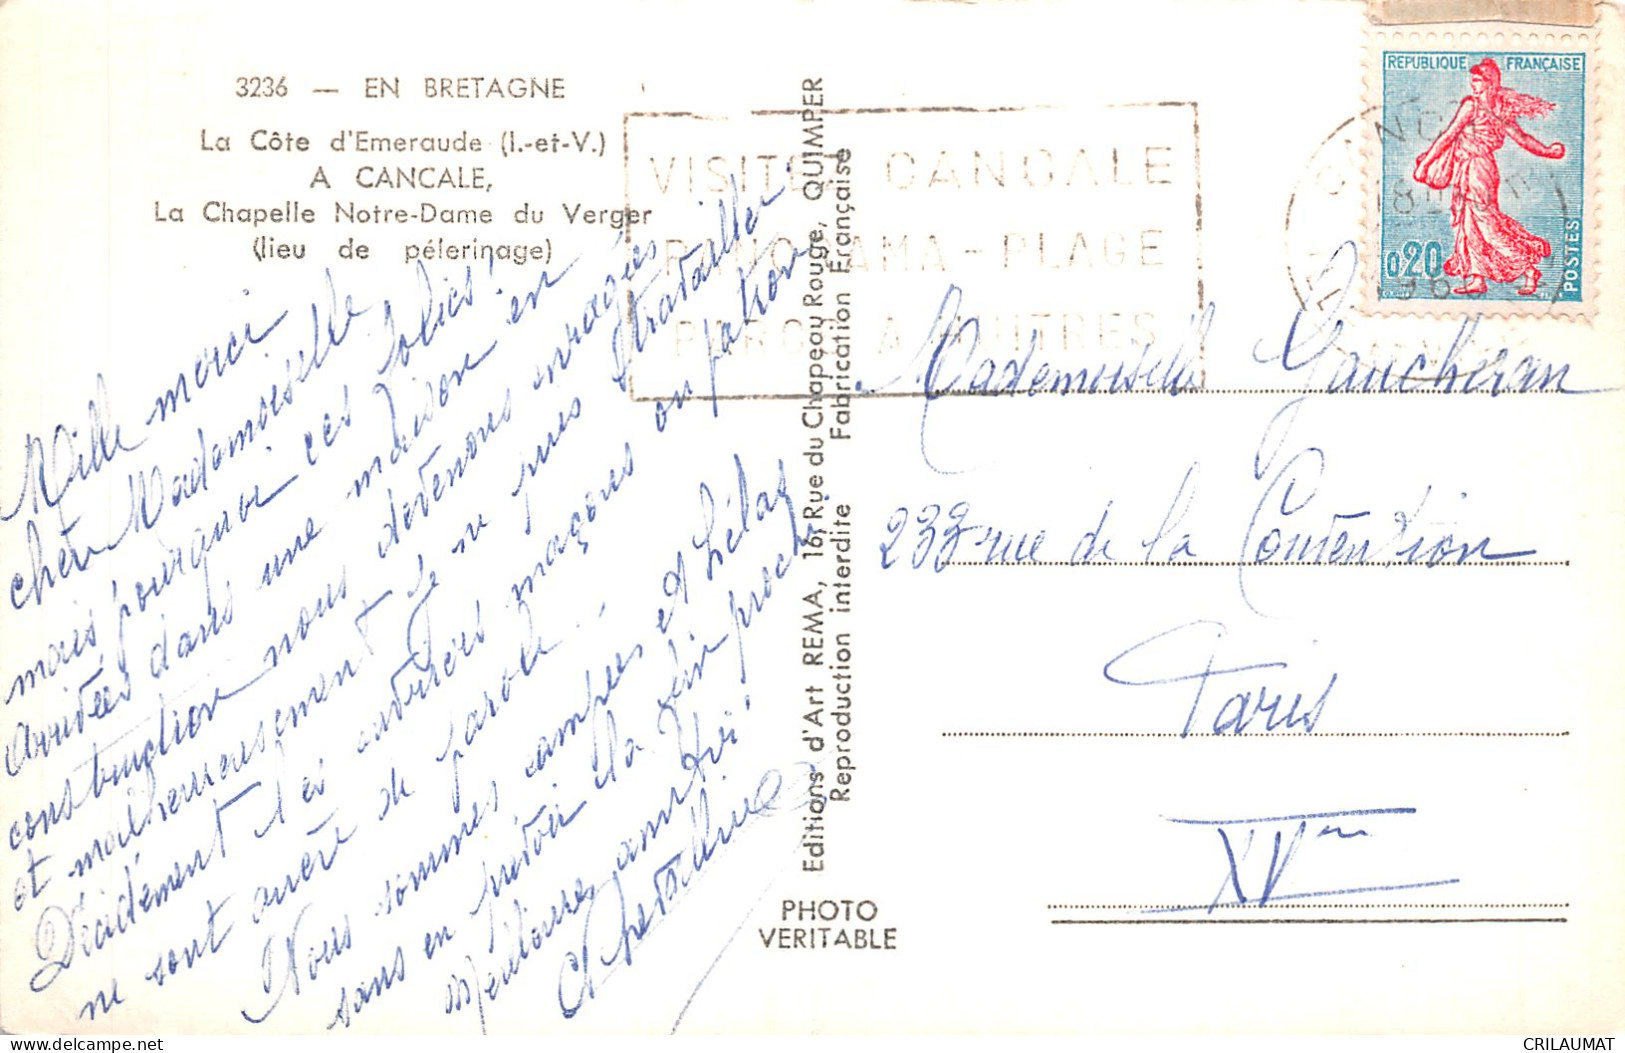 3236 — EN BRETAGNE
La Côte d'Emeraude (I.-et-V.)
A CANCALE,
La Chapelle Notre-Dame du Verger
(lieu de pélerinage)
VISITEZ CANCALE
PANORAMA - PLAGE
PARCS A HUITRES
REPUBLIQUE FRANÇAISE
0,20
POSTES
Mille merci
chère Mademoiselle
mais pourquoi ces folies!
Arrivées dans une maison en
construction nous devenons enragées
et malheureusement je ne puis travailler.
Décidément les ouvriers maçons ou patron
ne sont avare de parole!
Nous sommes campées et hélas
sans en prévoir la fin prochaine
Meilleures amitiés
Editions d'Art REMA, 16, Rue du Chapeau Rouge, QUIMPER
Reproduction interdite Fabrication Française
PHOTO
VERITABLE
Mademoiselle Gaucheran
233 rue de la Convention
Paris
XVem
CRILAUMAT